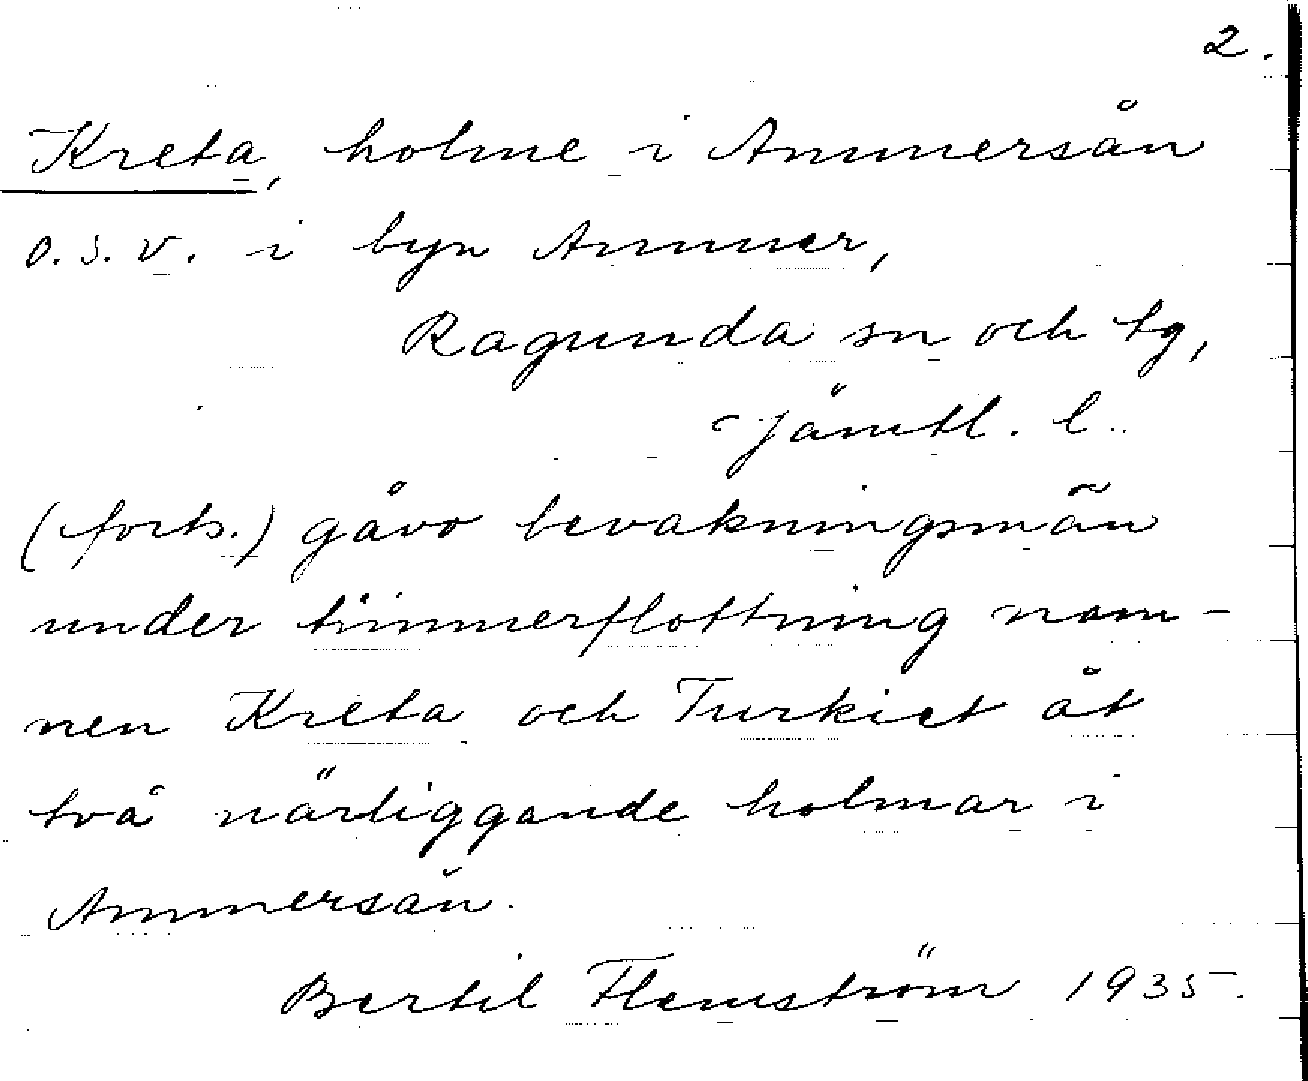 2.
Kreta, holme i Ammersån
o.s.v. i byn Ammer,
Ragunda sn och tg,
Jämtl. l.
(forts.) gåvo bevakningsmän
under timmerflottning nam-
nen Kreta och Turkiet åt
två närliggande holmar i
Ammersån.
Bertil Flemström 1935.